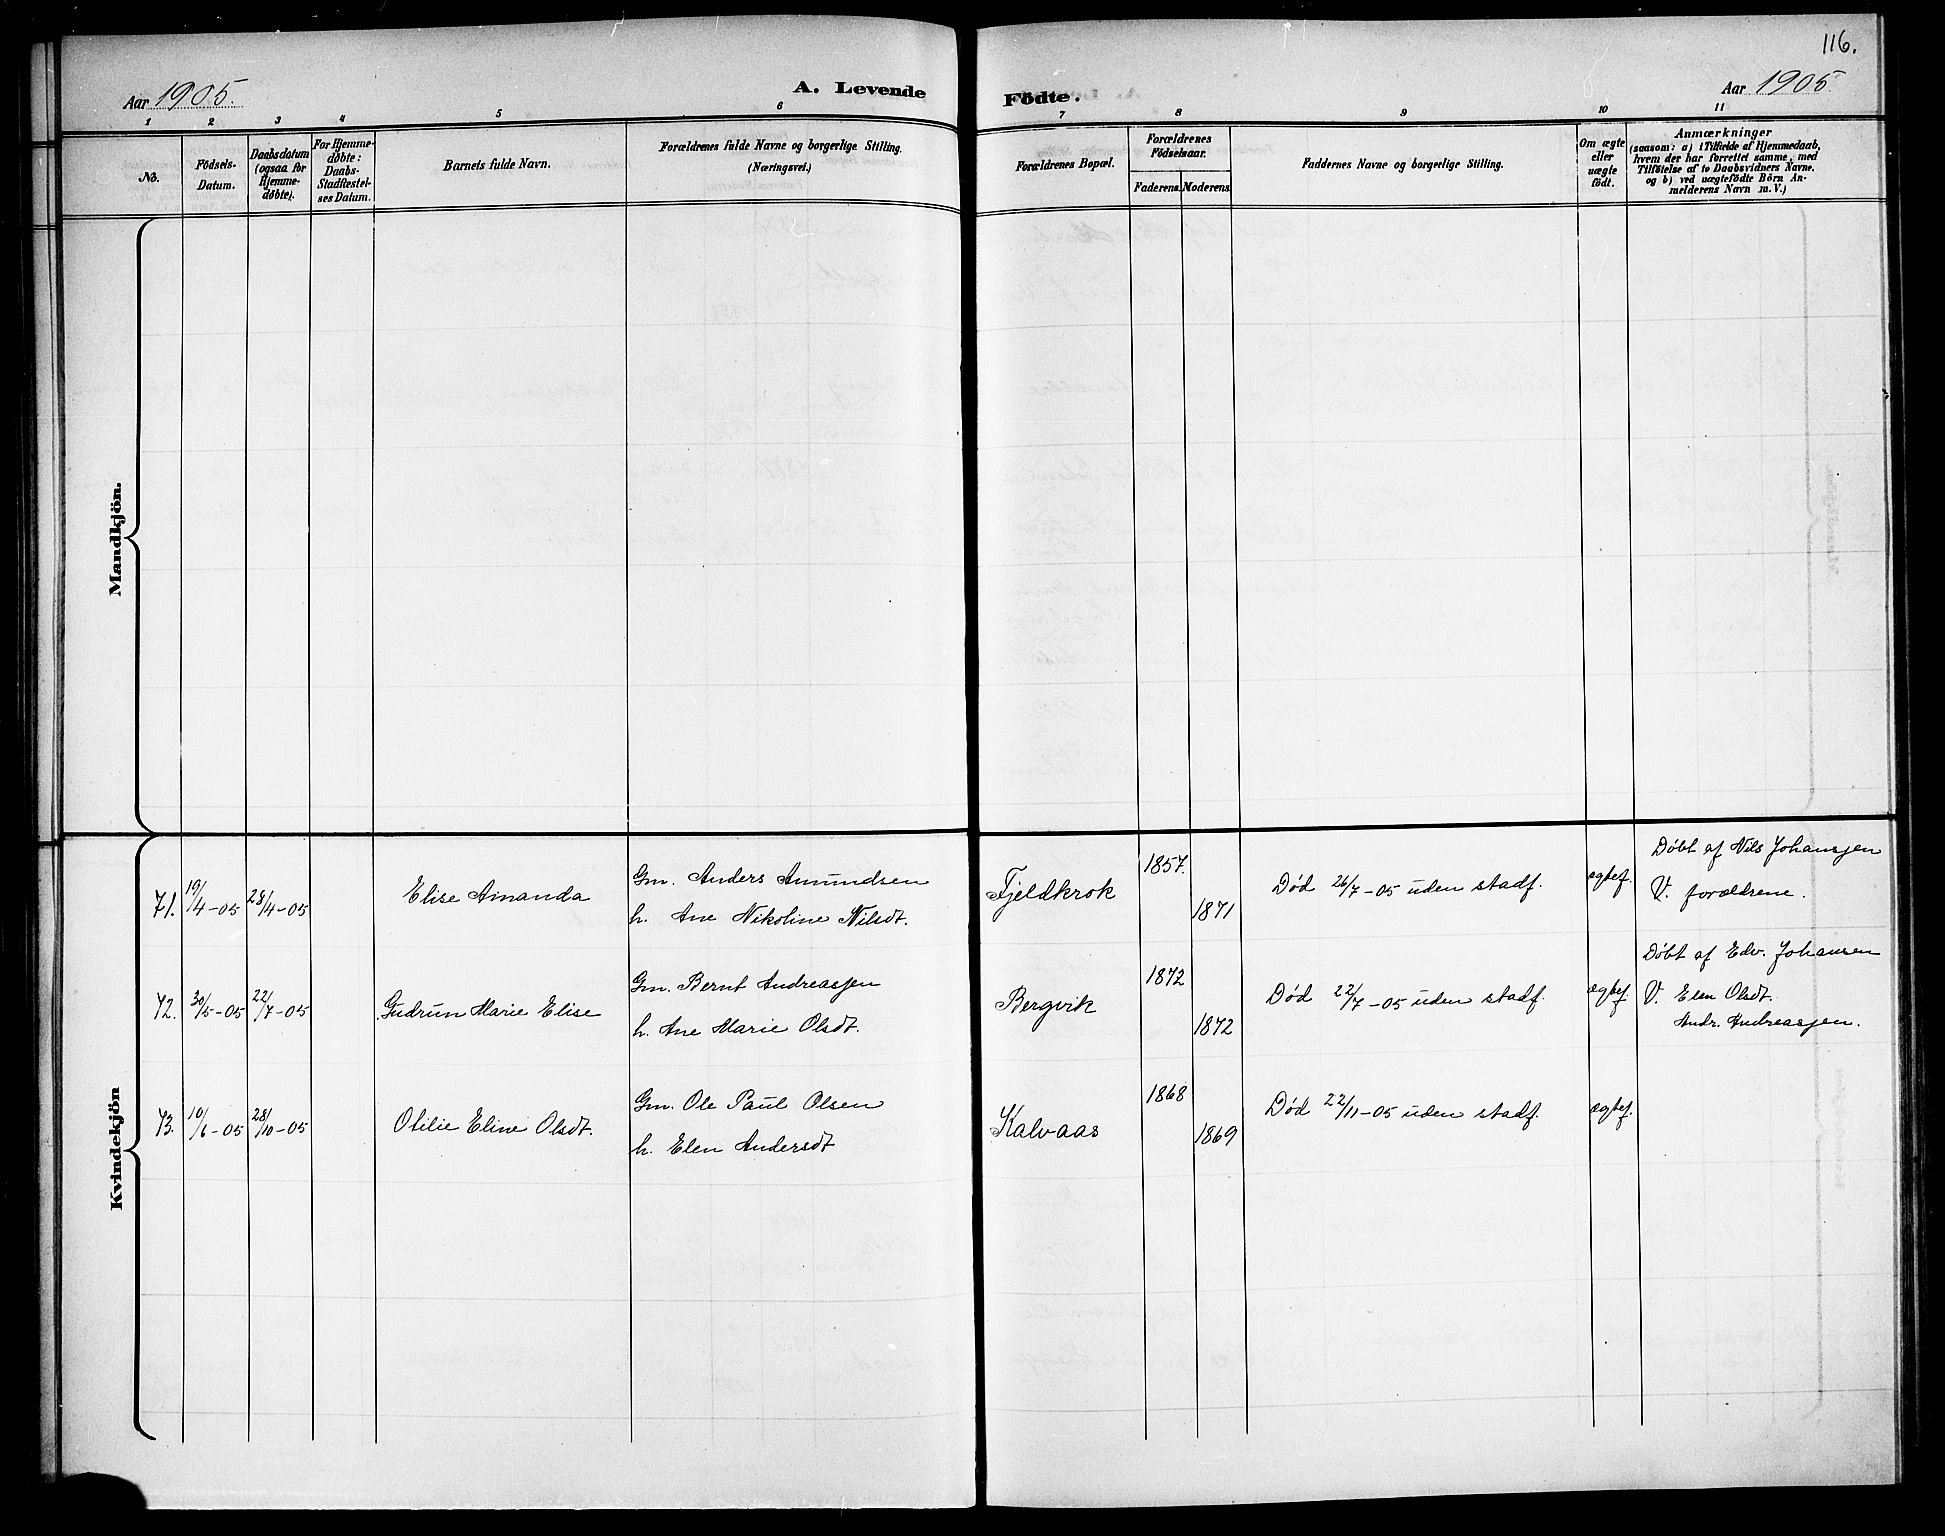 116.
Aar 1905.
A. Levende
Födte.
Aar 1905
1 2 3 4 5 6 7 8 9 10 11
No.
Födsels-
Datum.
Daabsdatum
(ogsaa for
Hjemme-
döbte).
For Hjemme-
döbte:
Daabs-
Stadfæstel-
ses Datum.
Barnets fulde Navn.
Forældrenes fulde Navne og borgerlige Stilling.
(Næringsvei.)
Forældrenes Bopæl.
Forældrenes
Födselsaar.
Faderens.
Moderens.
Faddernes Navne og borgerlige Stilling.
Om ægte
eller
uægte
født.
Anmærkninger
(saasom: a) i Tilfælde af Hjemmedaab,
hvem der har forrettet samme, med
Tilföielse af to Daabsvidners Navne,
og b) ved uægtefödte Börn An-
melderens Navn m. V.)
Mandkjön.
Kvindekjön
71. 19/4-05 28/4-05 Elise Amanda
Gm. Anders Amundsen
h. Ane Nikoline Nilsdt.
Fjeldkrok 1857. 1871
Död 26/7-05 uden stadf. ægtef.
Döbt af Nils Johansen
V. forældrene.
72. 30/5-05 22/7-05 Gudrun Marie Elise
Gm. Bernt Andreassen
h. Ane Marie Olsdt.
Bergvik 1872 1872
Död 22/7-05 uden stadf. ægtef.
Döbt af Edv. Johansen
V. Elen Olsdt.
Andr. Andreassen.
73. 10/6-05 28/10-05 Otilie Eline Olsdt.
Gm. Ole Paul Olsen
h. Elen Andersdt
Kalvaas 1868 1869
Död 22/11-05 uden stadf. ægtef.